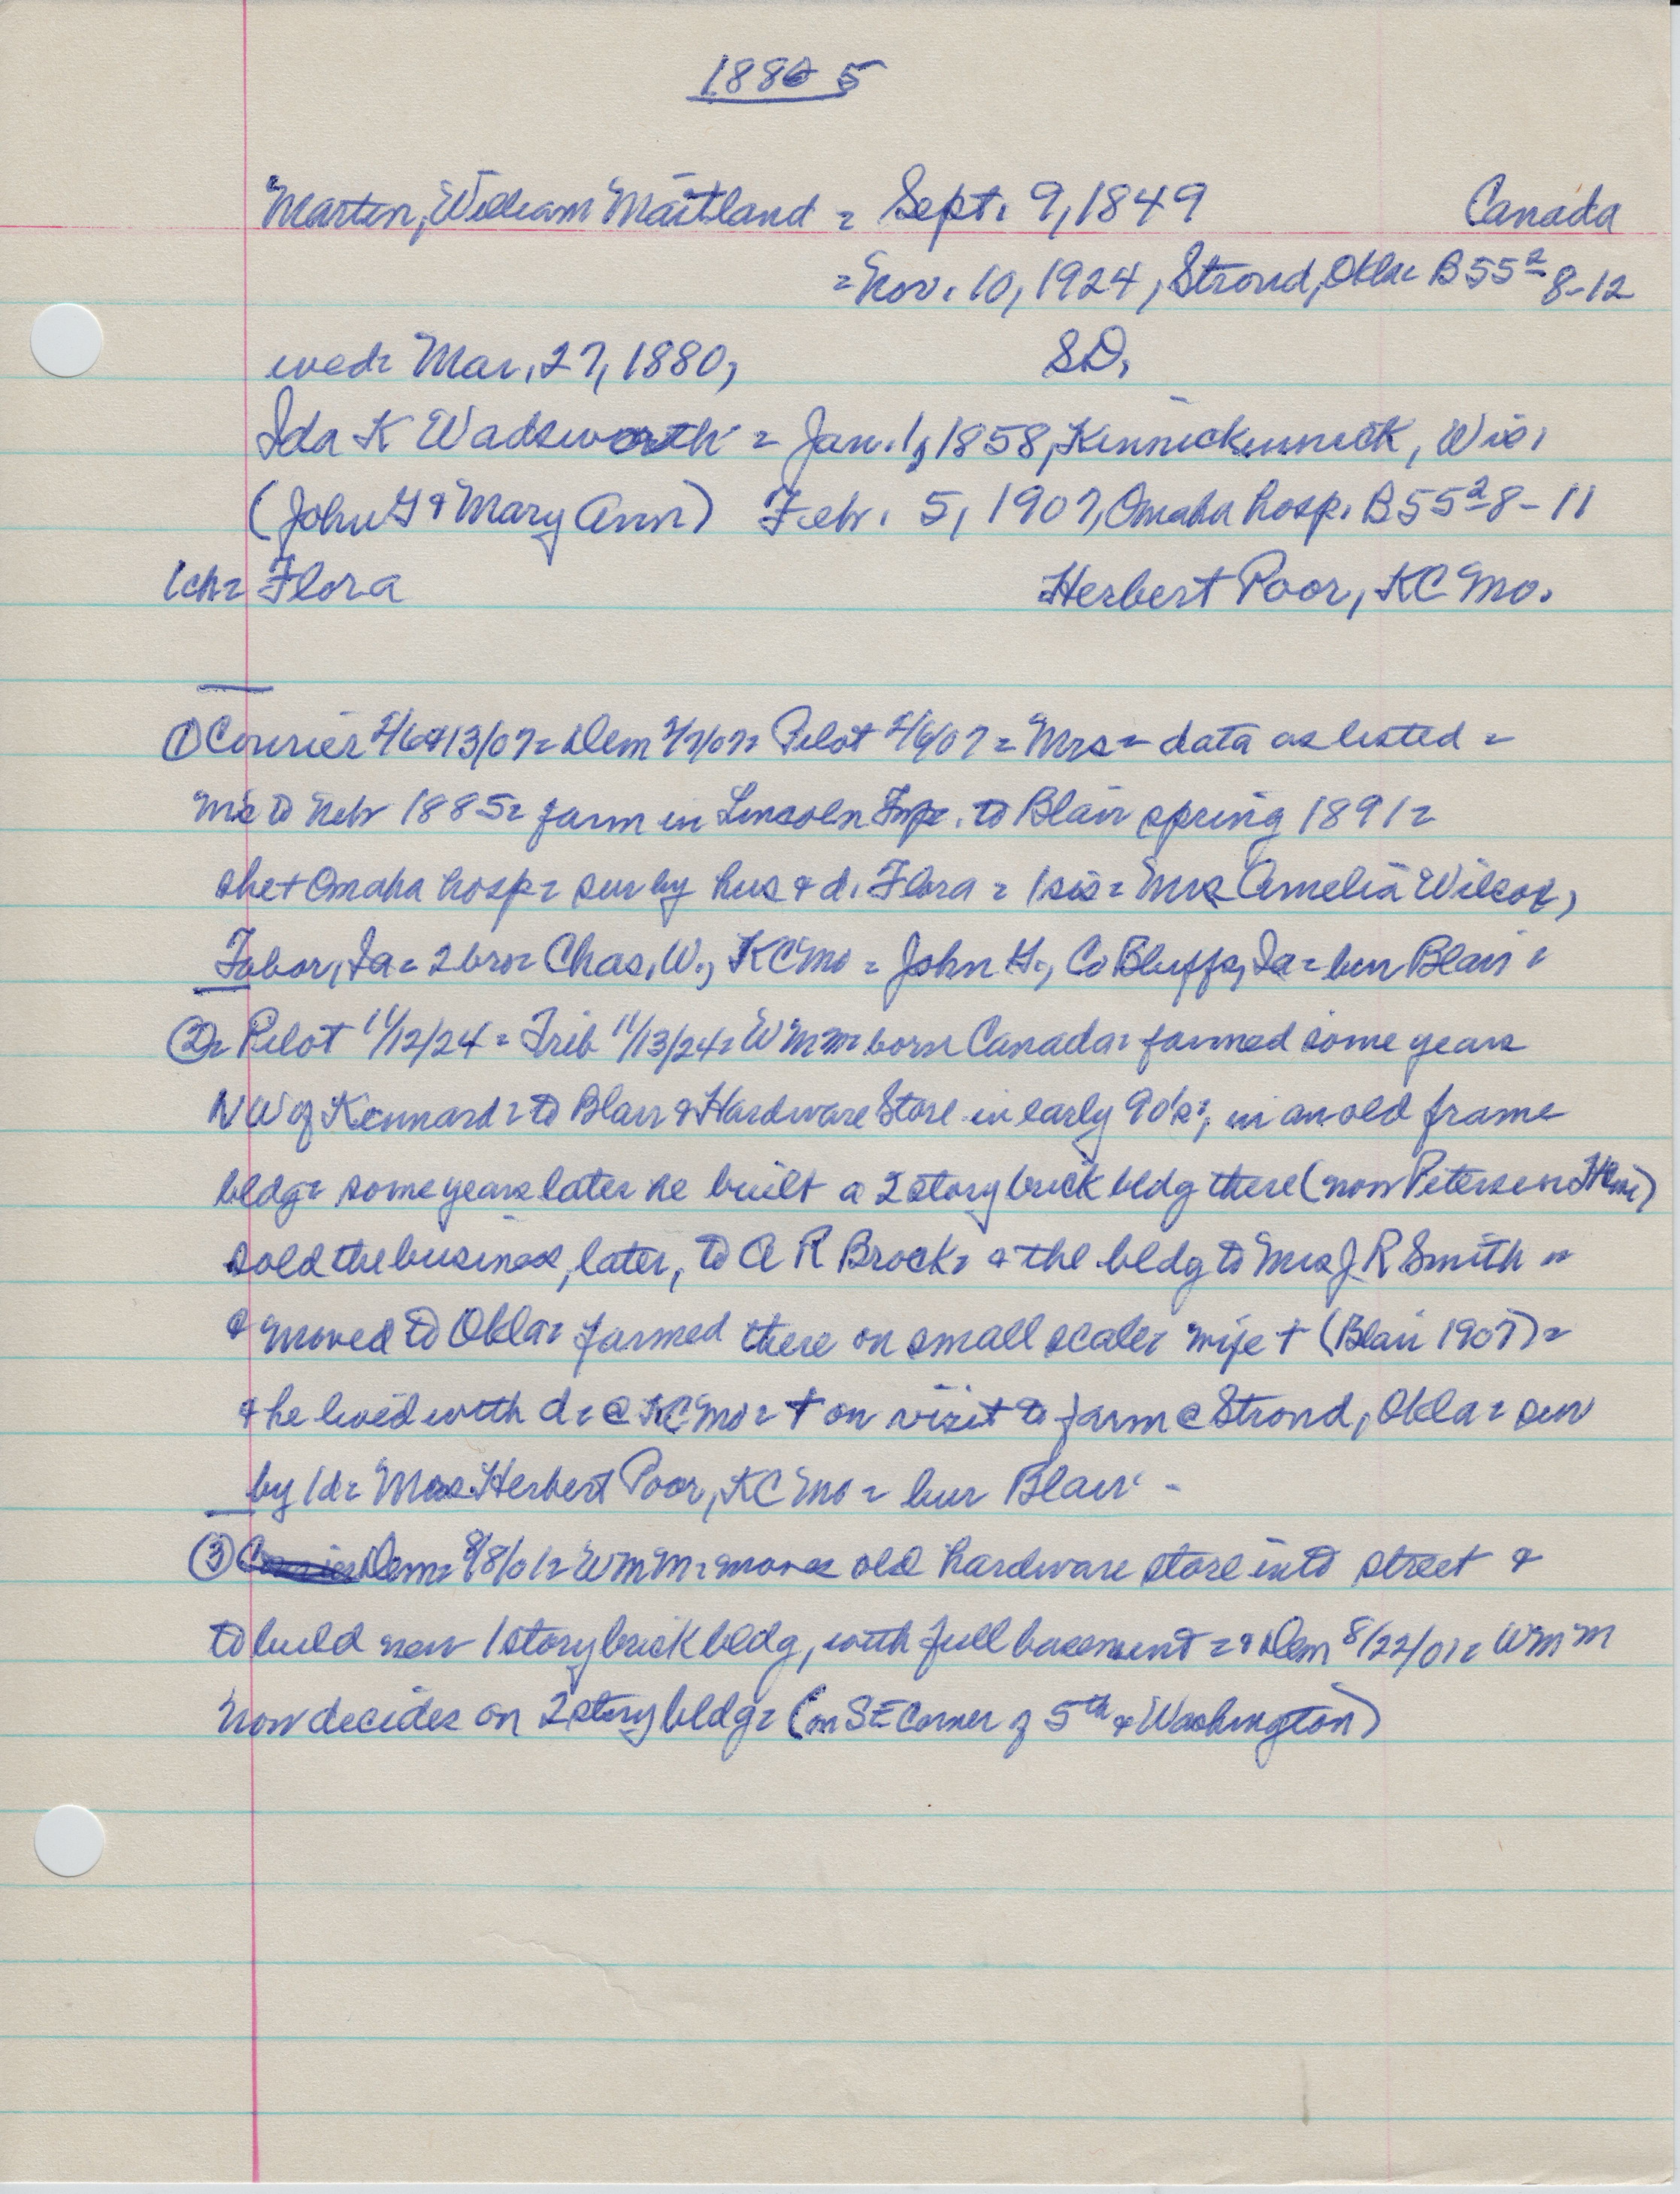 1886 5
Marten, William Maitland = Sept. 9, 1849 Canada
= Nov. 10, 1924, Stroud, Okla = B55 2 8-12
wed= Mar. 27, 1880, SD,
Ida K Wadsworth = Jan. 1, 1858, Kinnickinnick, Wis,
(John G & Mary Ann) Feb. 5, 1907, Omaha hosp. B55 2 8-11
1ch= Flora Herbert Poor, KC Mo.
① Courier 2/6&13/07= Dem 2/7/07= Pilot 2/6/07 = Mrs = data as listed =
to Neb 1885= farm in Lincoln Twp. to Blair spring 1891=
she † Omaha hosp= sur by hus & d. Flora = 1 sis= Mrs Amelia Wilcox,
Tabor, Ia= 2 bro= Chas. W., KC Mo = John G., Co Bluffs, Ia= bur Blair =
②= Pilot 11/12/24 = Trib 11/13/24= WmM= born Canada= farmed some years
NW of Kennard= to Blair & Hardware Store in early 90's; in an old frame
bldg= some years later he built a 2 story brick bldg there (now Petersen)
sold the business, later, to A R Brock, & the bldg to Mrs J R Smith =
& moved to Okla= farmed there on small scale= wife † (Blair 1907)=
& he lived with d= @ KC Mo= † on visit to farm @ Stroud, Okla= sur
by 1d= Mrs. Herbert Poor, KC Mo = bur Blair -
③ Dem= 8/8/01= WmM= moves old hardware store into street &
to build new 1 story brick bldg, with full basement = & Dem 8/22/01= WmM
now decides on 2 story bldg= (on SE Corner of 5th & Washington)